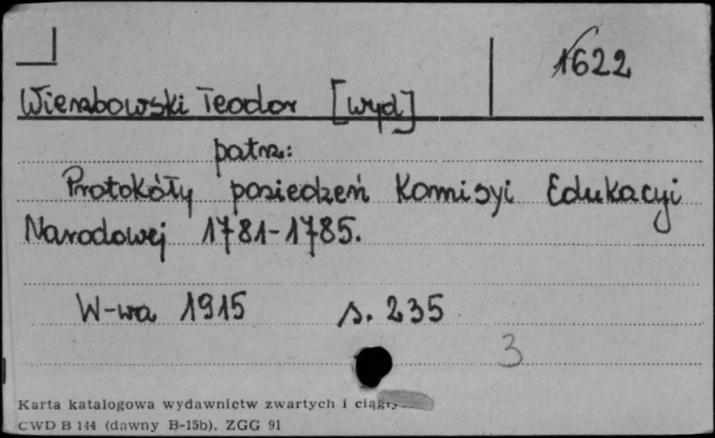 1622
Wierzbowski Teodor [wyd]
patrz:
Protokóły posiedzeń Komisyi Edukacyi
Narodowej 1781-1785.
W-wa 1915 s. 235
3
Karta katalogowa wydawnictw zwartych i
CWD B 144 (dawny B-15b). ZGG 91